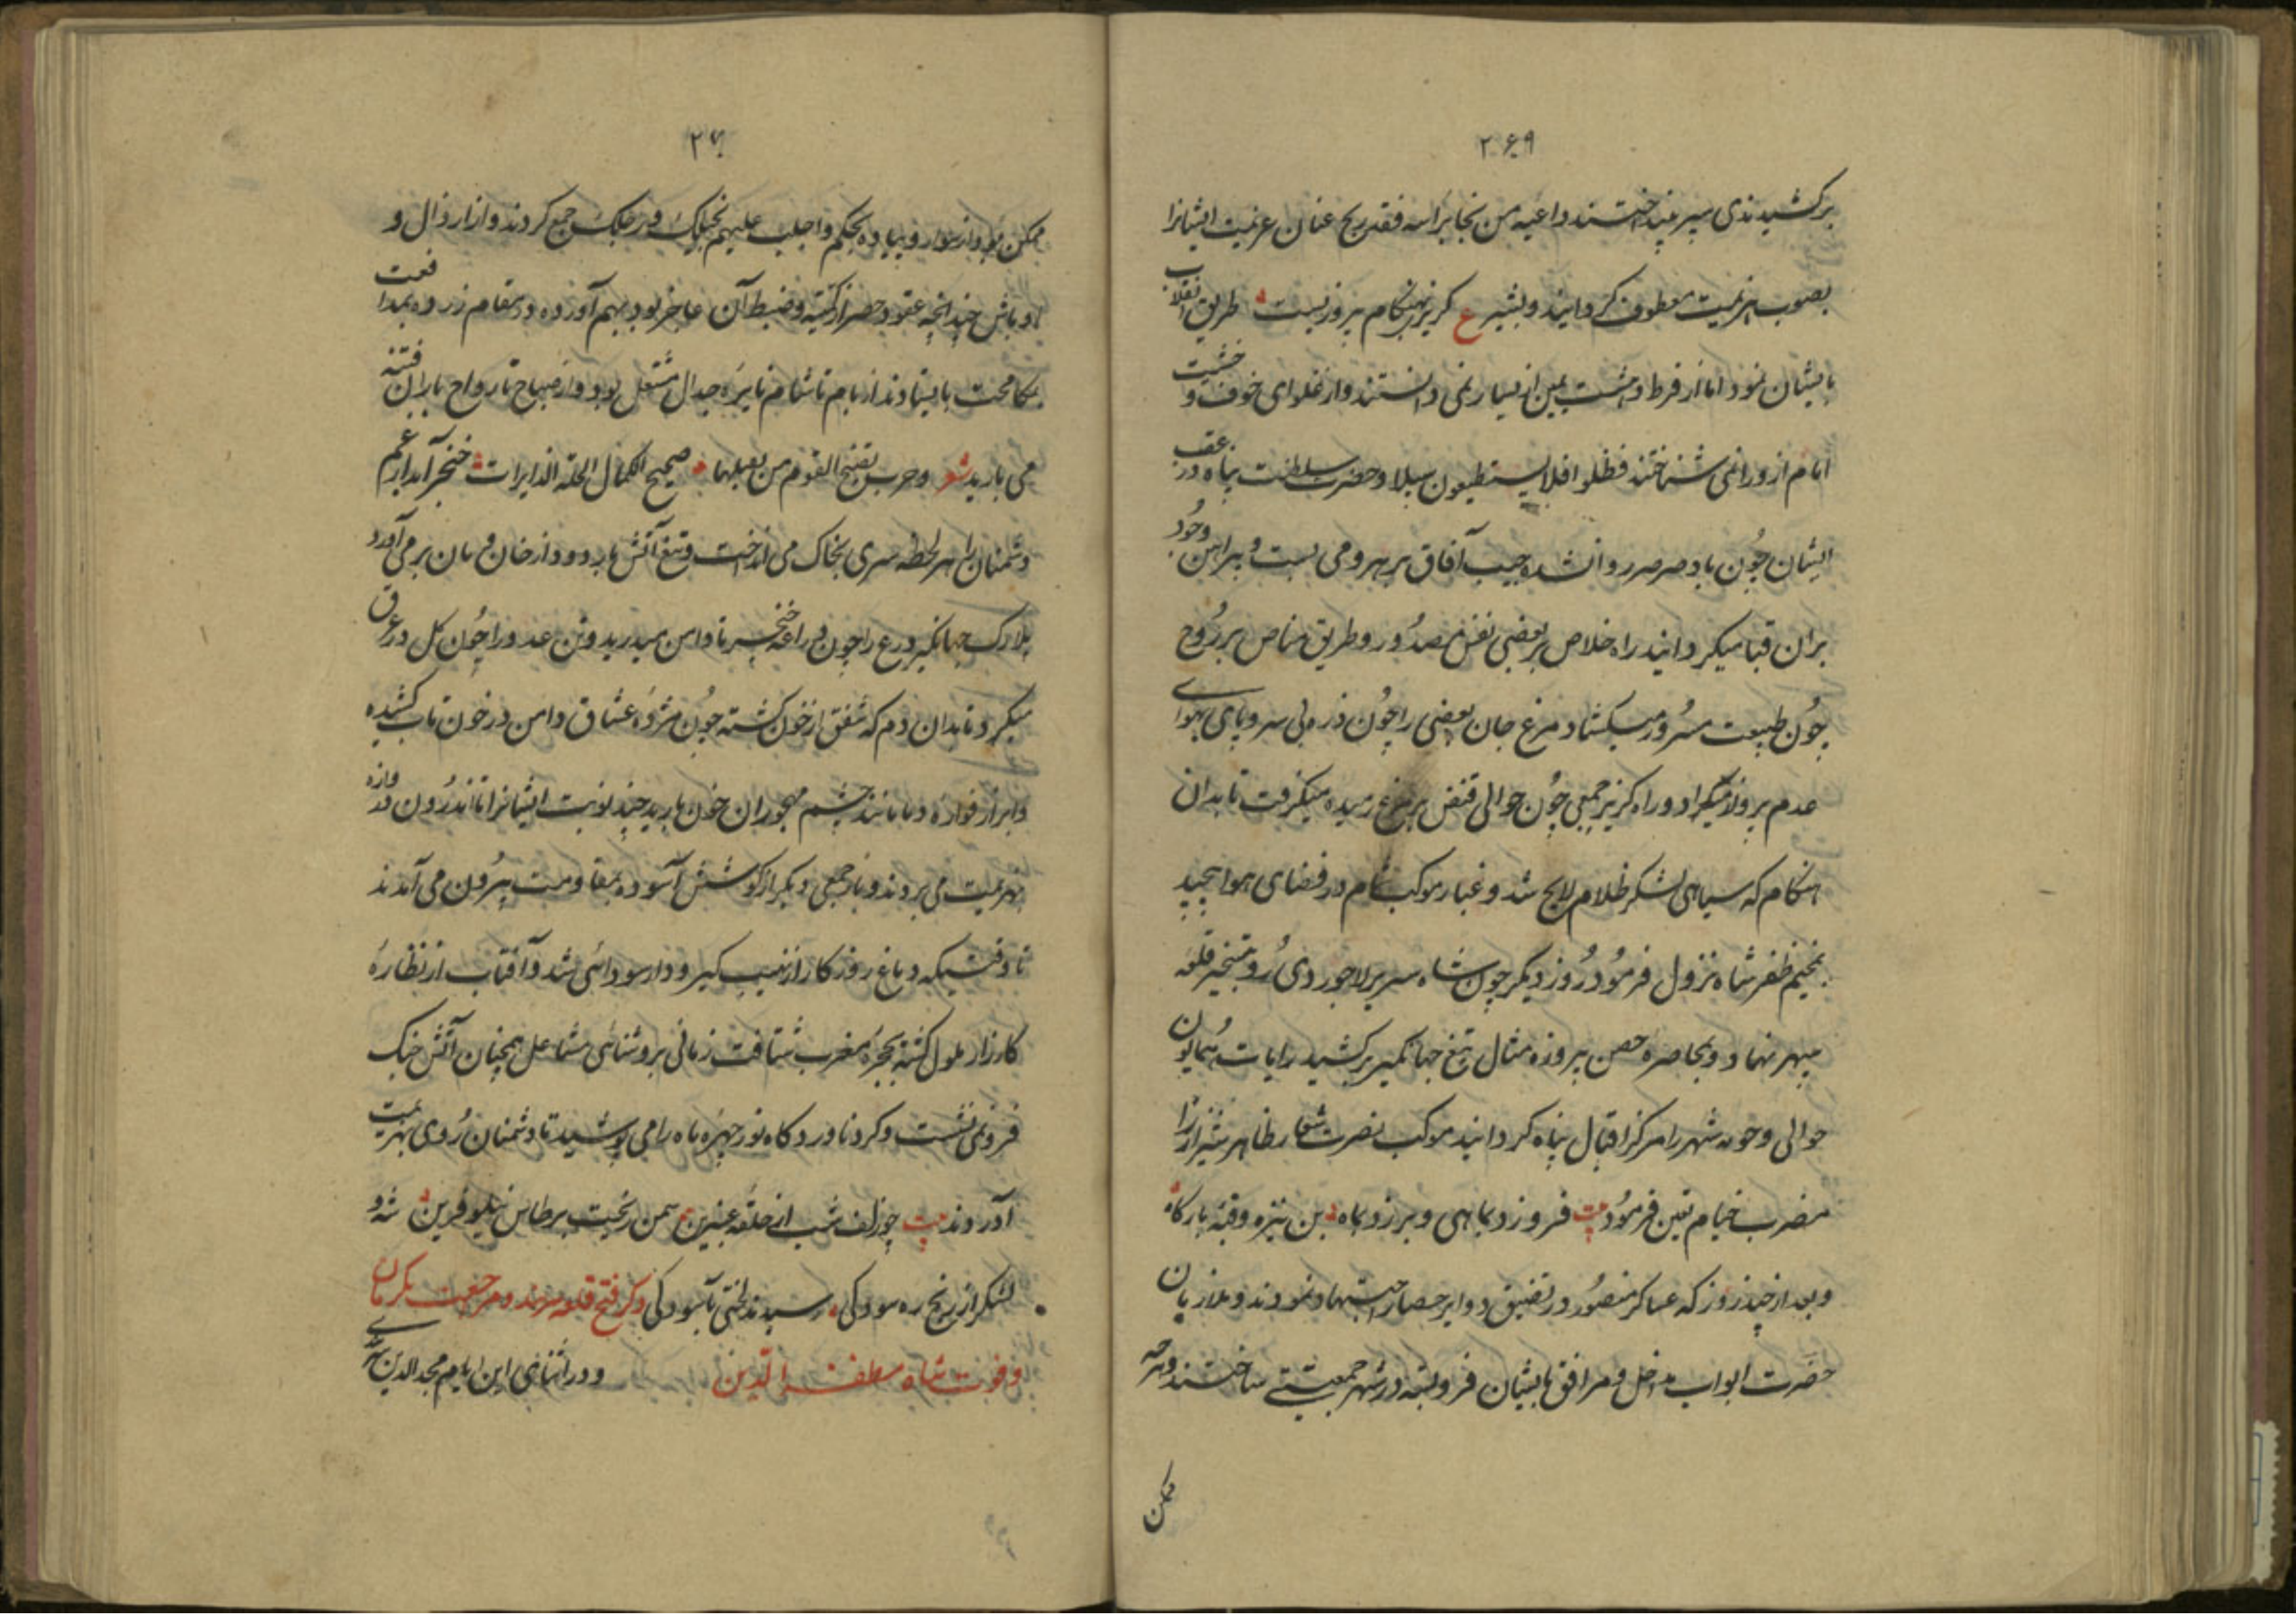 ۲۶۹
برکشیدندی سپر بینداختند داعیه من نجا براسه فقد ربح عنان عزیمت ایشانرا
بصوب هزیمت معطوف کردانید و بشیر ع کریز بهنکام پیروزیست طریق انقلاب
بایشان نمود اما از فرط دهشت یمین از یسار نمی دانستند واز غلوای خوف و خشیت
امام از ورا نمی شناختند فظلوا فلا یستطیعون سبیلا و حضرت سلطنت پناه در عقب
ایشان چون باد صرصر روان شده جیب آفاق بر بهرو می بست و پیراهن وجود
بران قبا میکردانید راه خلاص بر بعضی نفس مصدور و طریق مناص بر روح
چون طبیعت مسرور میکشاد مرغ جان بعضی را چون ذره بی سر و پای بهوای
عدم پرواز میداد و راه کریز جمعی چون حوالی قفس بر مرغ رمیده میکرفت تا بدان
هنکام که سیاهی لشکر ظلام لایح شد و غبار موکب شام در فضای هوا پیچید
بمخیم ظفر شاه نزول فرمود روز دیکر چون شاه سریر لاجوردی رو بتسخیر قلعه
سپهر نهاد و بمحاصره حصن پیروزه مثال تیغ جهانکیر برکشید رایات همایون
حوالی و حومه شهر را مرکز اقبال پناه کردانید موکب نصرت شعار ظاهر شیراز را
مضرب خیام تعین فرمود بیت فروزد بماهی و برزد بماه بن نیزه و قبه بارکاه
و بعد از چند روز که عساکر منصور در تضییق دوایر حصار اجتهاد نمودند و ملازمان
حضرت ابواب مداخل و مرافق بایشان فرو بسته در شهر جمعیتی ساختند و هرچه
ممکن
۲۷۰
ممکن بود از سوار و پیاده بحکم واجلب علیهم بخیلک ورجلک جمع کردند و از ارذال و
اوباش چندانچه عقود حصر از کمیه و ضبط آن عاجز بود بهم آورده در مقام زد و مدافعت
بمکامحت بایستادند از بام تا شام نایره جدال مشتعل بود و از صباح تا رواح باران فتنه
می بارید شعر و حرب یضیج القوم من صحیح الکمال الحلة الدایرات خنجر آبدار غم
دشمنان را هر لحظه سری بخاک می انداخت و تیغ آتش بار دود از خان و مان بر می آورد
پلارک جهانکیر درع را چون دراعه خنجر تا دامن میدرید و تن عدو را چون کل در عرق
میکرد تا بدان دم که شفق از خون کشته چون مژده عشاق دامن در خون ناب کشیده
و ابر از فواره دما مانند چشم مهجوران خون بارید چند نوبت ایشانرا تا اندرون دروازه
بهزیمت می بردند و باز جمعی دیکر از کوشش آسوده بمقاومت بیرون می آمدند
تا وقتیکه دماغ روز کار از نهیب کیر و دار سودائی شد و آفتاب از نظاره
کارزار ملول کشته بحجره مغرب شتافت زمانی بروشنائی مشاعل همچنان آتش جنک
فرو نمی نشست و کرد ناوردکاه نور چهره ماه را می پوشید تا دشمنان روی بهزیمت
آوردند بیت چو زلف شب از حلقه عنبرین سمن ریخت بر طاس نیلوفرین شه و
لشکر از رنج ره سودکی رسیدند لختی بآسودکی ذکر فتح قلعه سربند و مراجعت بکرمان
و فوت شاه مظفر الدین و در اثنای این ایام مجدالدین